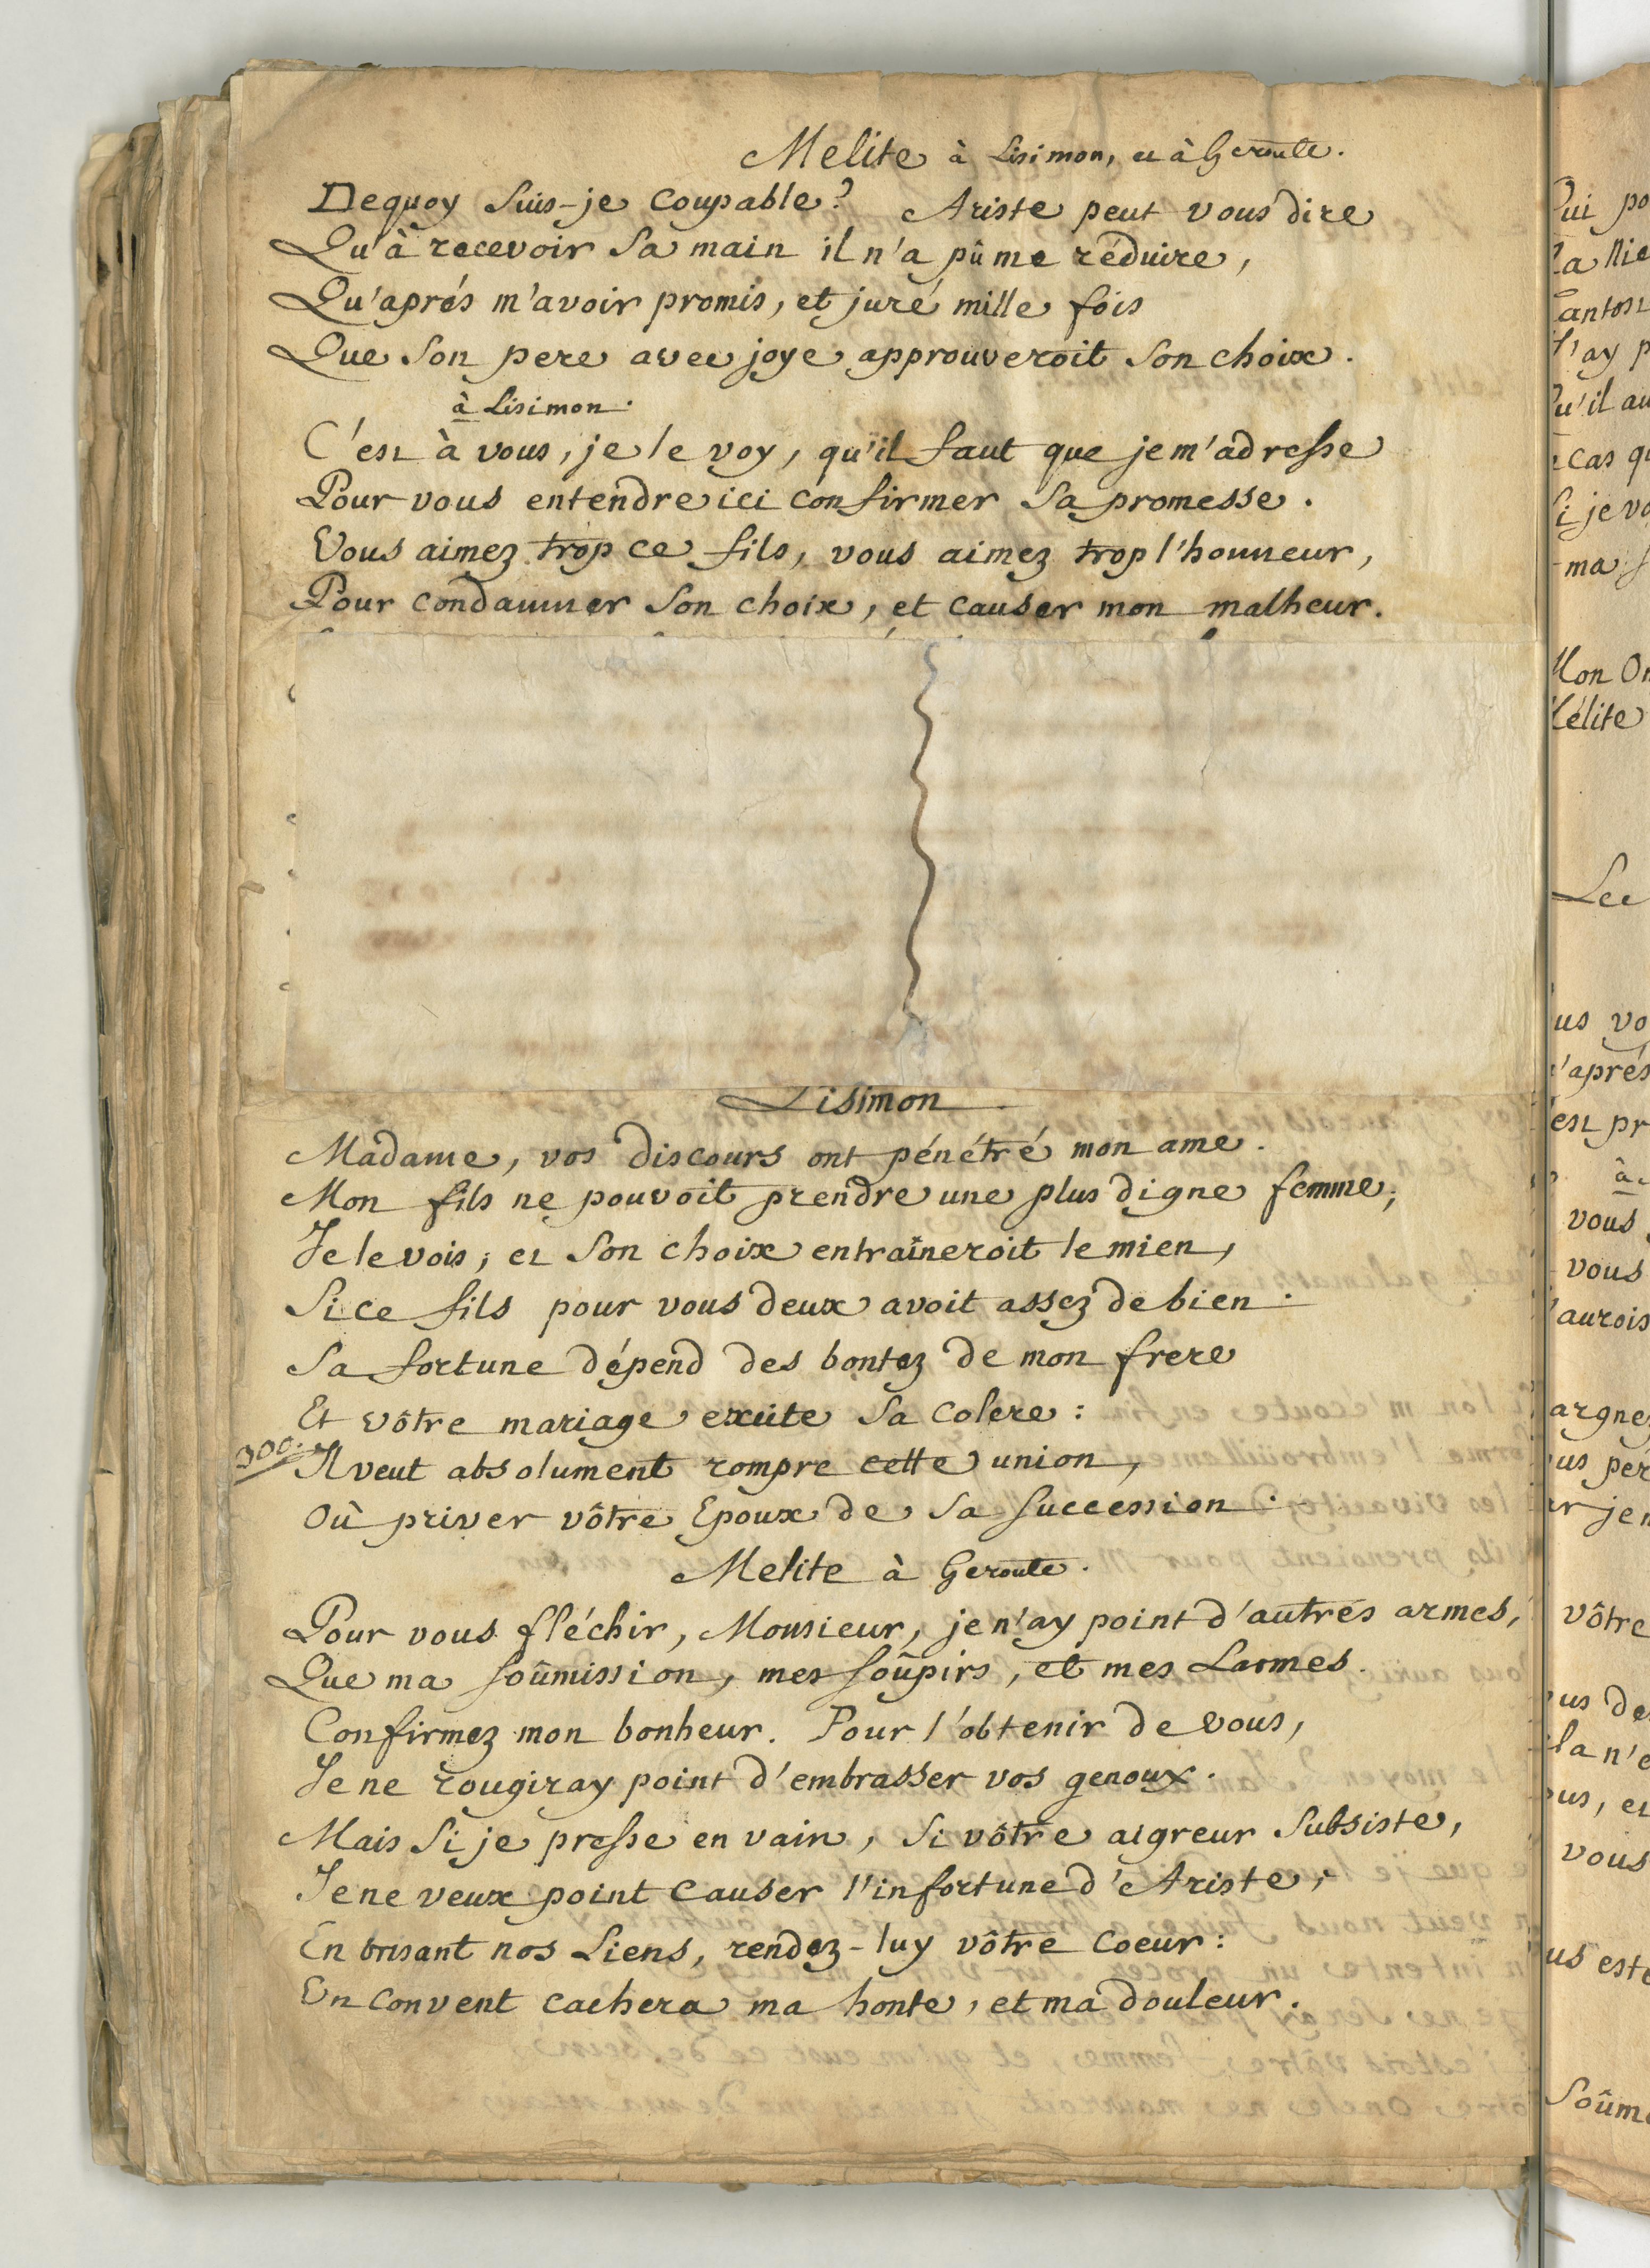 Melite à Lisimon, et à Geronte.
Dequoy Suis-je Coupable? Ariste peut vous dire
Qu'à recevoir Sa main il n'a pû me réduire,
Qu'aprés m'avoir promis, et juré mille fois
Que Son pere avec joye approuveroit Son choix.
à Lisimon.
C'est à vous, je le voy, qu'il faut que je m'adresse
Pour vous entendre ici confirmer Sa promesse.
Vous aimez trop ce fils, vous aimez trop l'honneur,
Pour condamner Son choix, et causer mon malheur.
Lisimon
Madame, vos discours ont pénétré mon ame.
Mon fils ne pouvoit prendre une plus digne femme;
Je le vois, et Son choix entraîneroit le mien,
Si ce fils pour vous deux avoit assez de bien.
Sa fortune dépend des bontez de mon frere
Et vôtre mariage excite Sa Colere:
300. Il veut absolument rompre cette union,
Où priver vôtre Epoux de Sa Succession.
Melite à Geronte.
Pour vous fléchir, Monsieur, je n'ay point d'autres armes,
Que ma Soûmission, mes Soûpirs, et mes Larmes.
Confirmez mon bonheur. Pour l'obtenir de vous,
Je ne rougiray point d'embrasser vos genoux.
Mais Si je presse en vain, Si vôtre aigreur Subsiste,
Je ne veux point Causer l'infortune d'Ariste;
En brisant nos Liens, rendez-luy vôtre Coeur:
Un Convent cachera ma honte, et ma douleur.
ui po
antost
'ay p
u'il au
cas qu
Si je vo
ma
Mon On
Mélite
us vo
'aprés
est pr
à
vous
vous
aurois
argnez
us per
er je n
vôtre
us de
la n'e
us, et
vous
us este
Soûm